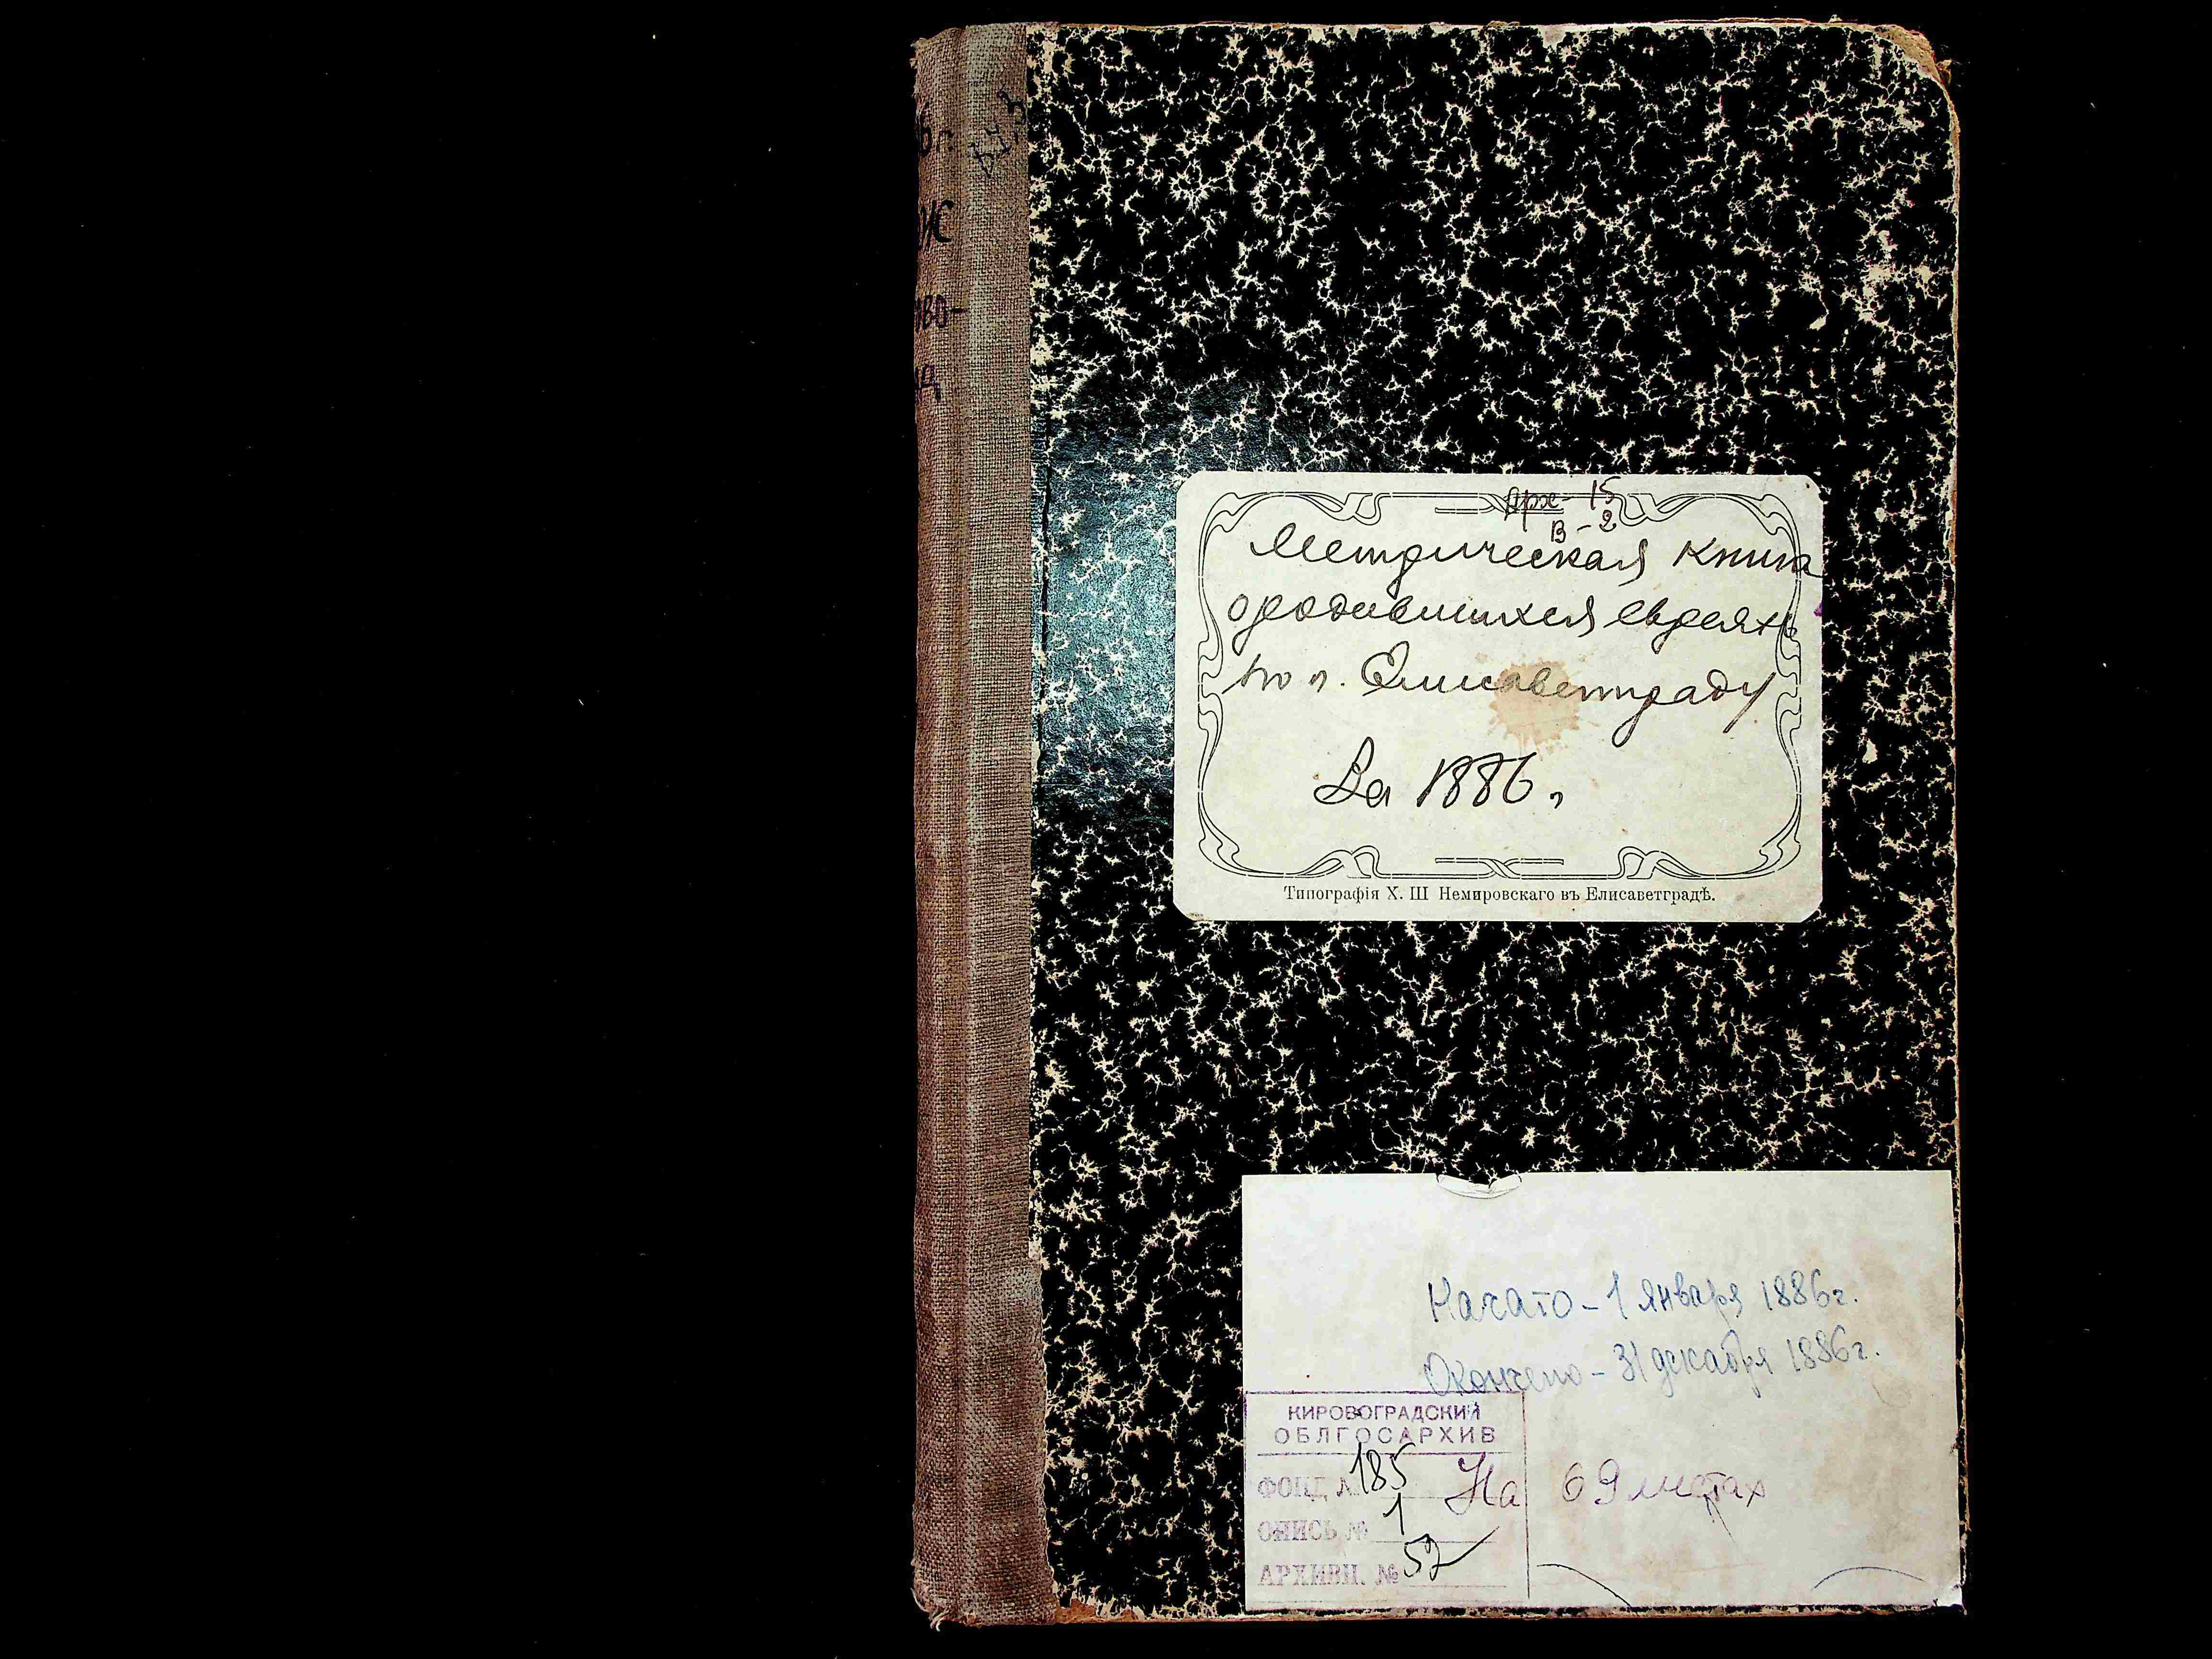 6г.
ож
ово-
ад
Арх - 15
В - 2
Метрическая книга
о родившихся евреяхъ
по г. Елисаветграду
За 1886 г
Типографія Х. Ш Немировскаго въ Елисаветградѣ.
Начато - 1 января 1886г.
Окончено - 31 декабря 1886г.
КИРОВОГРАДСКИЙ
ОБЛГОСАРХИВ
ФОНД № 185
На 69 листах
ОПИСЬ № 1
АРХИВН. № 57